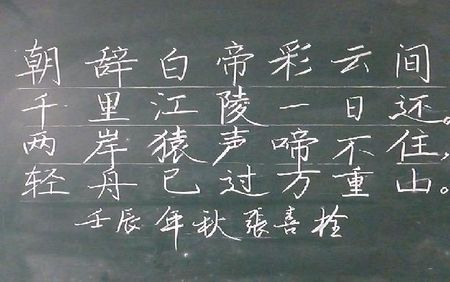 朝辞白帝彩云间
千里江陵一日还。
两岸猿声啼不住,
轻舟已过万重山。
壬辰年秋张喜栓